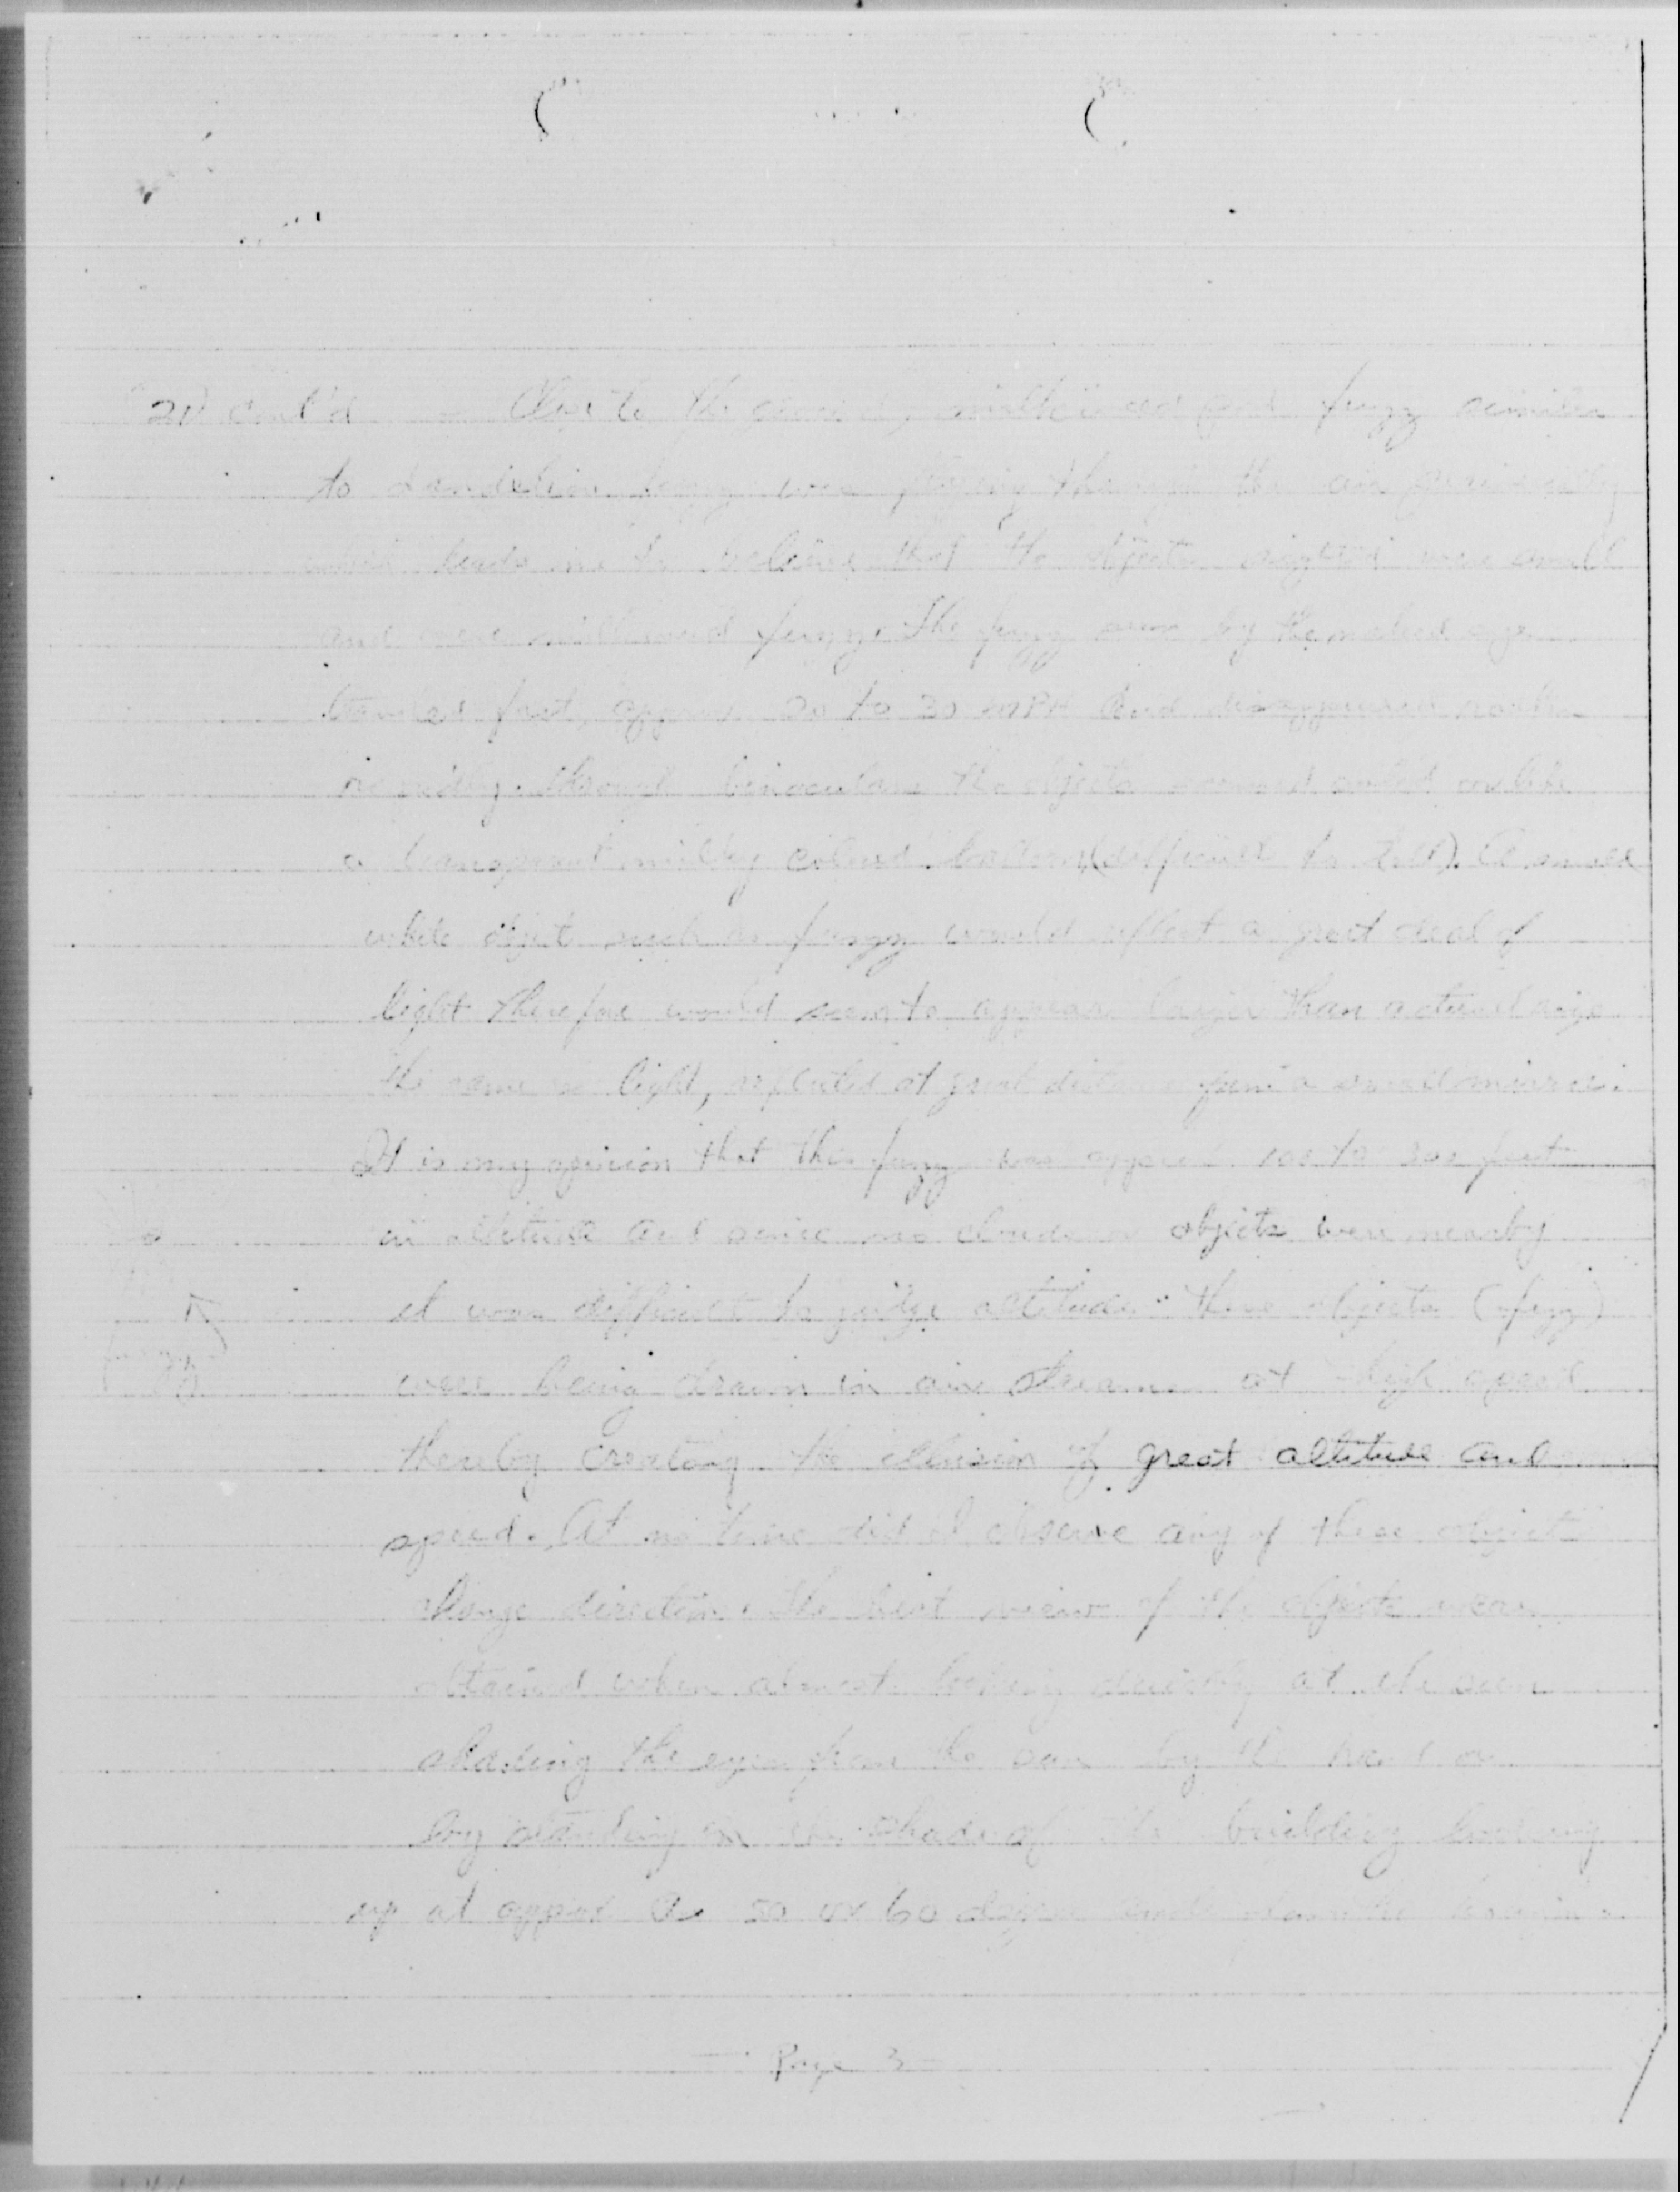 20) Cont'd - Close to the ground, milkweed fuzz similar
to dandelion fuzz were flying through the air
leads me to believe that the objects sighted were small
and were milkweed fuzz. The fuzz seen by the naked eye
traveled fast, approx 20 to 30 MPH and disappeared rather
rapidly. Through binoculars the objects seemed
a transparent milky colored balloon (difficult to tell). A small
white object such as fuzz would reflect a great deal of
light therefore would seem to appear larger than actual size
the same as light, reflected at great distance from a small mirror.
It is my opinion that this fuzz was approx feet
in altitude and since no clouds or objects were nearby
it was difficult to judge altitude. These objects (fuzz)
were being drawn in air streams at high speed
thereby creating the illusion of great altitude and
speed. At no time did I observe any of these objects
change direction. The best view of the objects was
obtained when almost looking directly at the sun
shading the eyes from the sun by the hand or
by standing in the shade of the building looking
up at approx 50 or 60 degree
- Page 3 -